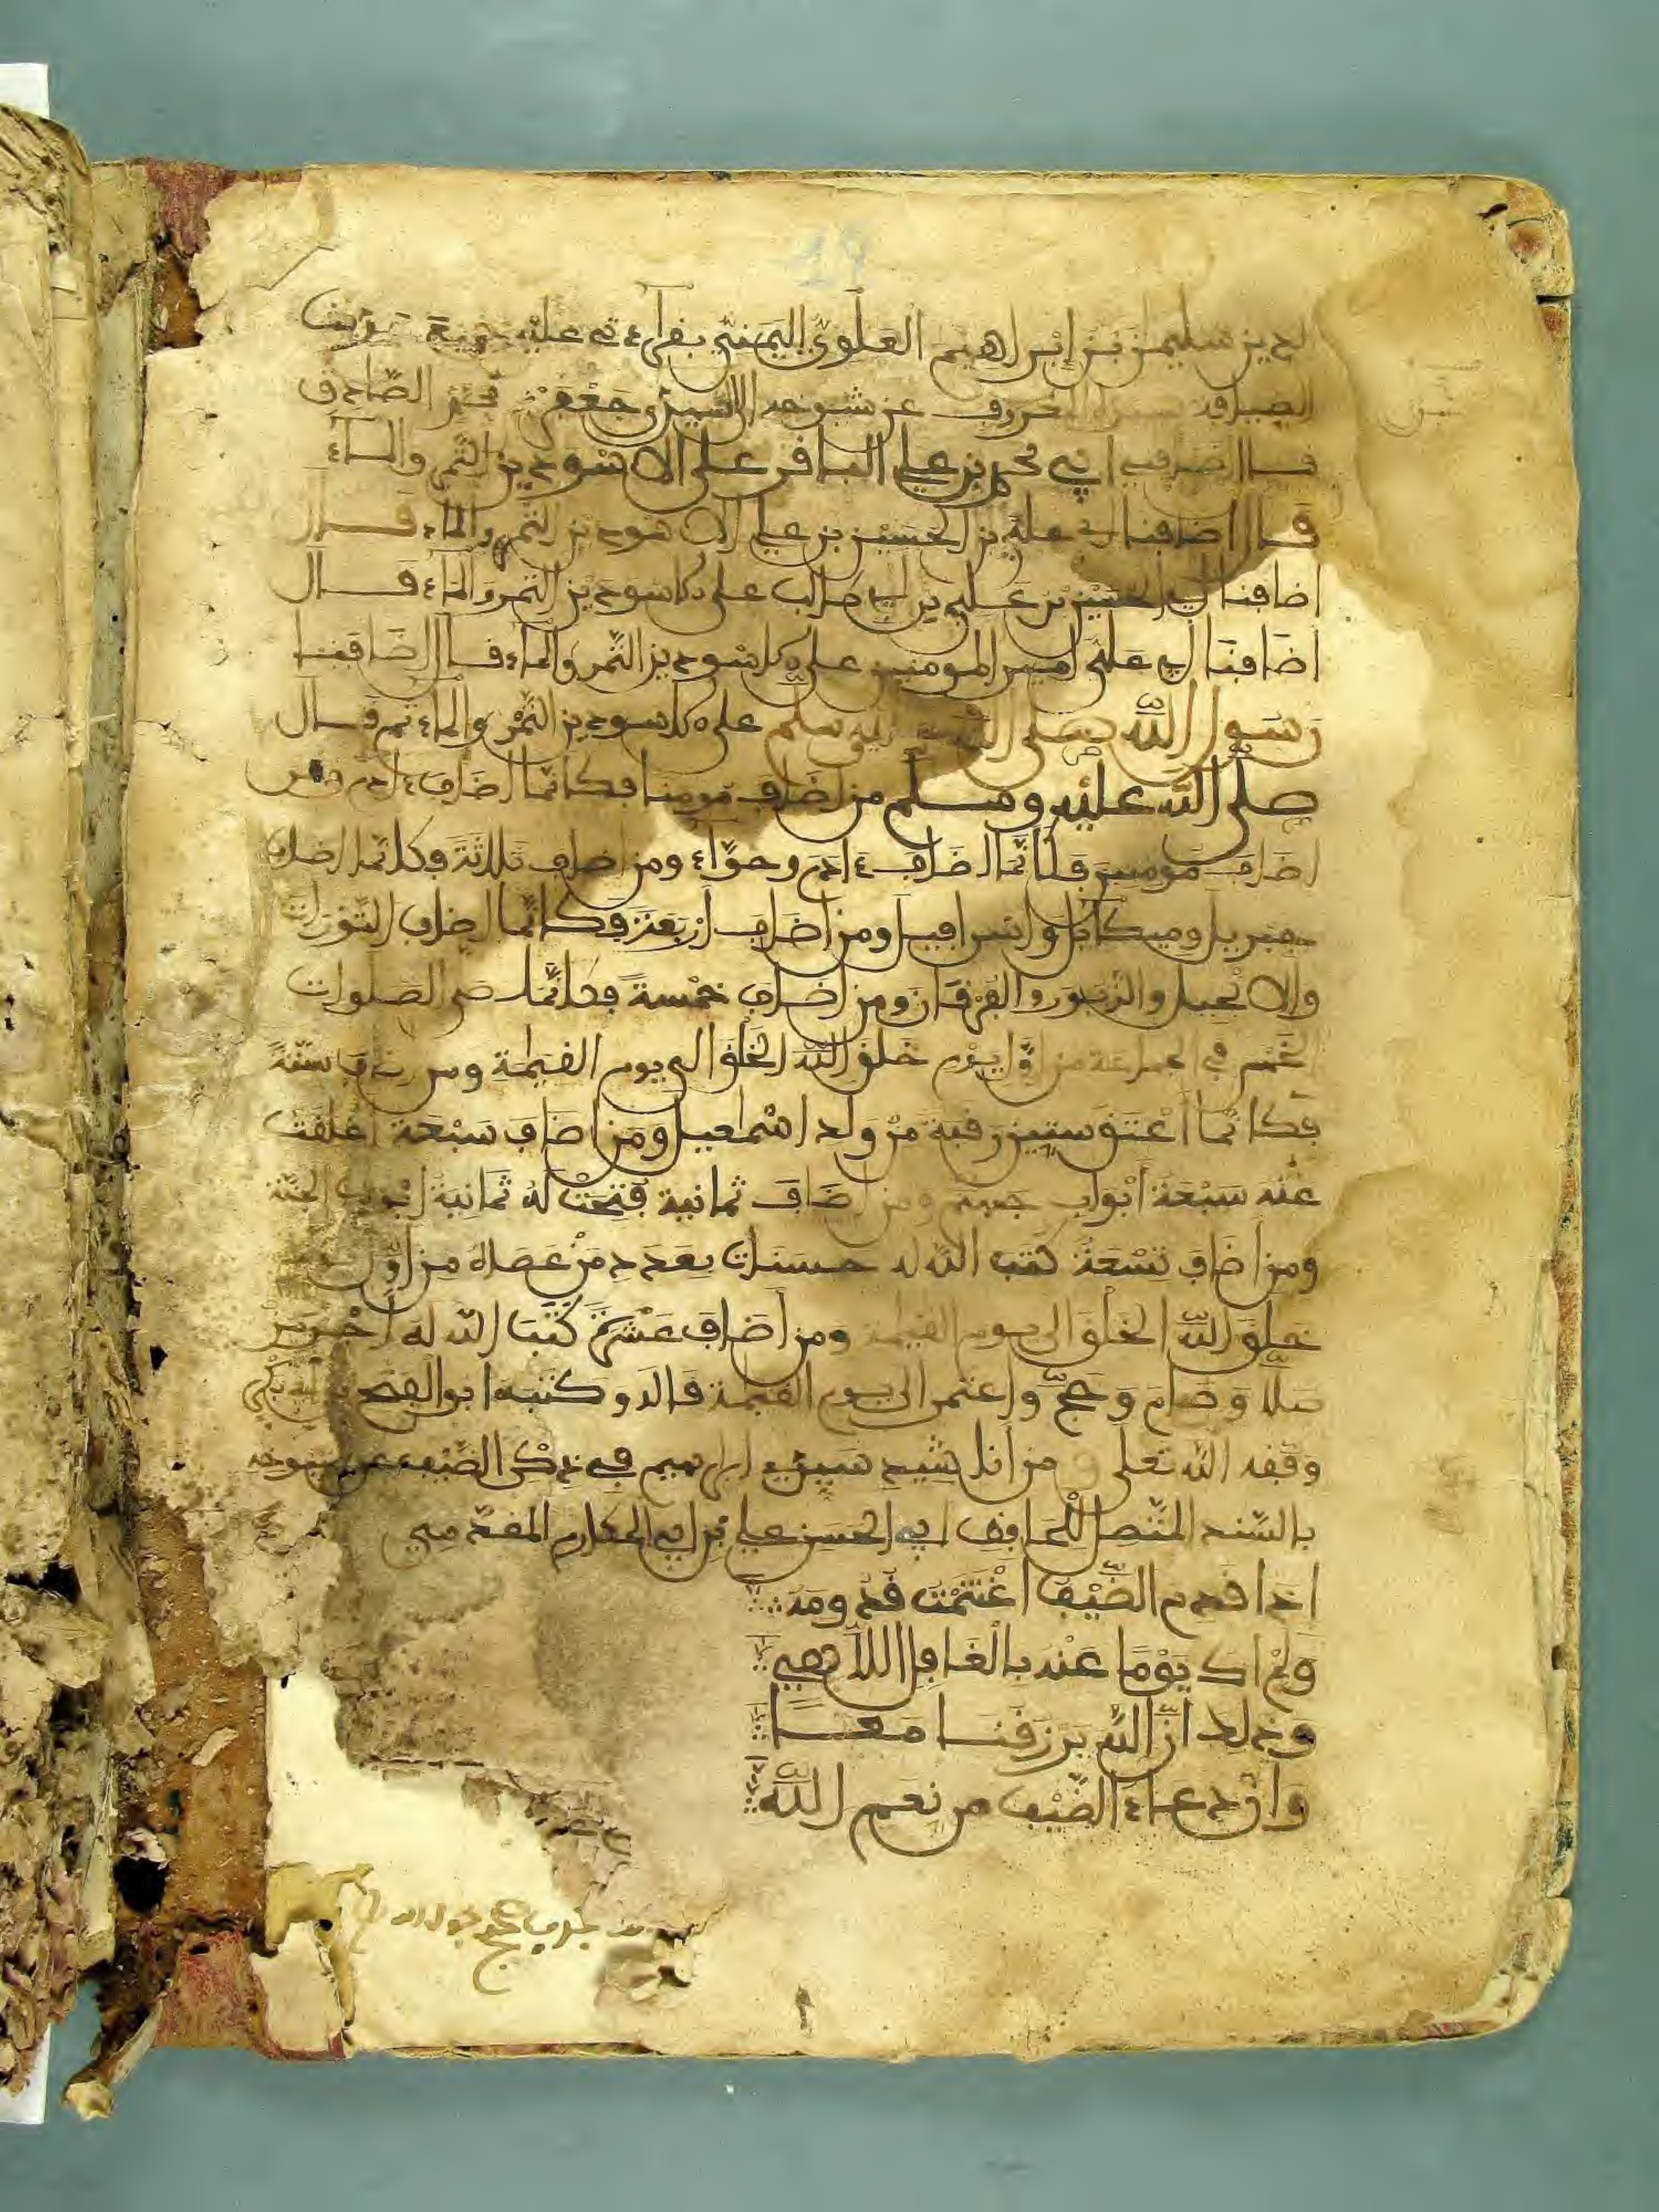 بن سليمن بن إبراهيم العلوي اليمني بقراءتي عليه جميعه
عن شيوخه إلى جعفر بن محمد الصادق
قال أضافني أبي محمد بن علي الباقر على الاسودين التمر والماء
قال أضافنا أبي علي بن الحسين بن علي الاسودين التمر والماء قال
أضافنا أبي الحسين بن علي بن أبي طالب على الاسودين التمر والماء قال
أضافنا أبي علي أمير المومنين على الاسودين التمر والماء قال أضافنا
رسول الله صلى الله عليه وسلم على الاسودين التمر والماء ثم قال
صلى الله عليه وسلم من أضاف مومنا فكأنما أضاف ءادم ومن
أضاف مومنين فكأنما أضاف ءادم وحواء ومن أضاف ثلاثة فكأنما أضاف
جبريل وميكائل وإسرافيل ومن أضاف أربعة فكأنما أضاف التورات
والانجيل والزبور والفرقان ومن أضاف خمسة فكأنما صلى الصلوات
الخمس في الجماعة من أول يوم خلق الله الخلق إلى يوم القيمة ومن أضاف ستة
فكأنما أعتق ستين رقبة من ولد إسمعيل ومن أضاف سبعة أغلقت
عنه سبعة أبواب جهنم ومن أضاف ثمانية فتحت له ثمانية أبواب الجنة
ومن أضاف تسعة كتب الله له حسنات بعدد من عصاه من أول
خلق الله الخلق إلى يوم القيمة ومن أضاف عشرة كتب الله له أجر من
صلا وصام وحج واعتمر إلى يوم القيمة قال وكتبه أبو الفتح بن أبي بكر
وفقه الله تعلى من أناشيد سيدي إبراهيم في ذكر الضيف عن شيوخه
بالسند المتصل للحافظ أبي الحسن علي بن أبي المكارم المقدسي
إذا قدم الضيف اغتنمت قدومه
ولم أك يوما عنه بالغافل اللاهي
وذلك أن الله يرزقنا معا
وان دعاء الضيف من نعم الله